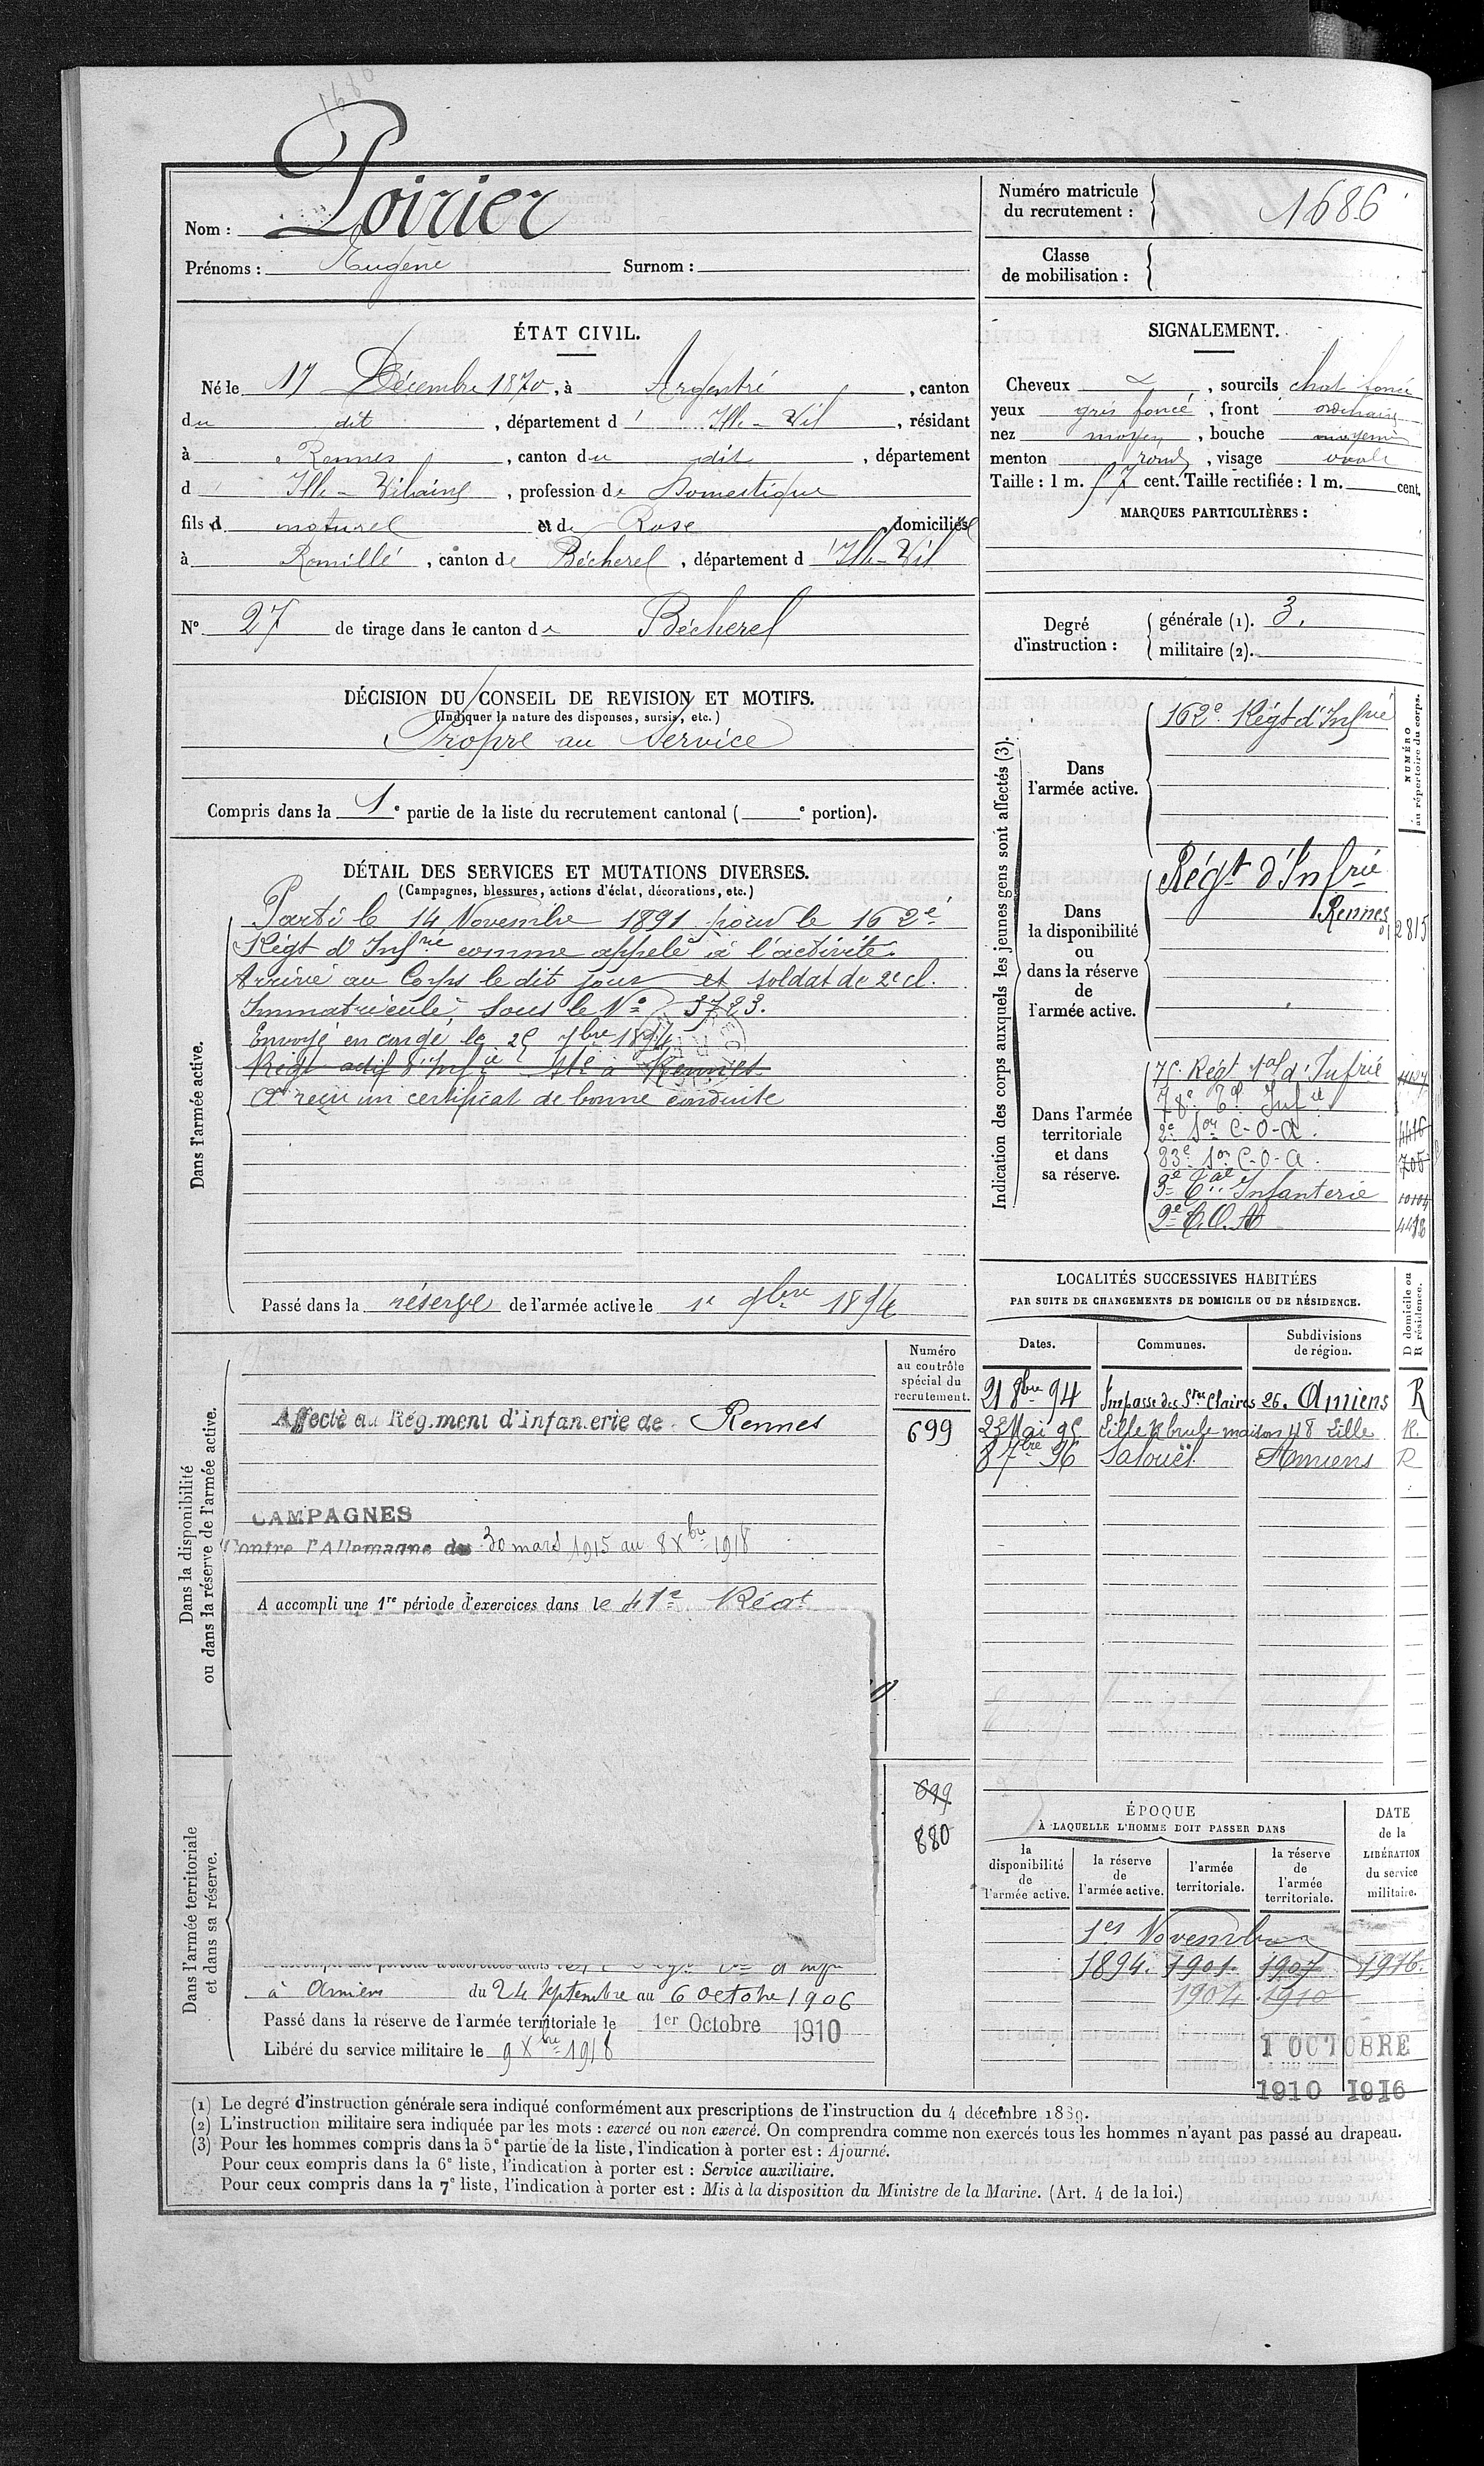 1686
Nom : Poirier
Prénoms : Eugène Surnom :
Numéro matricule du recrutement : 1686
Classe de mobilisation :
ÉTAT CIVIL.
Né le 17 Décembre 1870, à Argentré, canton
du dit, département d' Ille-Vil, résidant
à Rennes, canton du dit, département
d' Ille-Vilaine, profession de Domestique
fils naturel et de Rose domiciliée
à Romillé, canton de Bécherel, département d'Ille-Vil
N° 27 de tirage dans le canton de Bécherel
SIGNALEMENT.
Cheveux &, sourcils chat foncé
yeux gris foncé, front ordinaire
nez moyen, bouche moyenne
menton rond, visage ovale
Taille : 1 m. 57 cent. Taille rectifiée : 1 m. cent.
MARQUES PARTICULIÈRES :
Degré d'instruction : générale (1). 3.
militaire (2).
DÉCISION DU CONSEIL DE REVISION ET MOTIFS.
(Indiquer la nature des dispenses, sursis, etc.)
Propre au Service
Compris dans la 1e partie de la liste du recrutement cantonal ( e portion).
DÉTAIL DES SERVICES ET MUTATIONS DIVERSES.
(Campagnes, blessures, actions d'éclat, décorations, etc.)
Dans l'armée active.
Parti le 14 Novembre 1891 pour le 162e
Régt d'Infrie comme appelé à l'activité.
Arrivé au Corps le dit jour et soldat de 2e cl.
Immatriculé sous le N° 3723.
Envoyé en congé le 25 7bre 1894
Régt actif d'Infie Sté à Rennes
A reçu un certificat de bonne conduite
Passé dans la réserve de l'armée active le 1e 9bre 1894
Indication des corps auxquels les jeunes gens sont affectés (3).
NUMÉRO au répertoire du corps.
Dans l'armée active.
162e Régt d'Infrie
Dans la disponibilité ou dans la réserve de l'armée active.
Régt d'Infrie
Rennes 2815
Dans l'armée territoriale et dans sa réserve.
75 Régt tal d'Infrie
78e Tal Infie
2e Son C-O-A. 4416
83e Son C-O-A. 705
3e Cie Infanterie 10104
2e C.O.A 4418
LOCALITÉS SUCCESSIVES HABITÉES
PAR SUITE DE CHANGEMENTS DE DOMICILE OU DE RÉSIDENCE.
Dates. Communes. Subdivisions de région. D domicile ou R résidence.
21 8bre 94 Impasse des Stes Claires 26. Amiens R
23 Mai 95 Lille R brule maison 48 Lille R.
8 7bre 96 Salouël Amiens R
Dans la disponibilité ou dans la réserve de l'armée active.
Numéro au contrôle spécial du recrutement.
Affecté au Régiment d'infanterie de Rennes
699
CAMPAGNES
Contre l'Allemagne du 30 mars 1915 au 8 Xbre 1918
A accompli une 1re période d'exercices dans le 41e Régt
Dans l'armée territoriale et dans sa réserve.
699
880
à Amiens du 24 septembre au 6 octobre 1906
Passé dans la réserve de l'armée territoriale le 1er Octobre 1910
Libéré du service militaire le 9 Xbre 1918
ÉPOQUE
À LAQUELLE L'HOMME DOIT PASSER DANS
la disponibilité de l'armée active. la réserve de l'armée active. l'armée territoriale. la réserve de l'armée territoriale. DATE de la LIBÉRATION du service militaire.
1er Novembre
1894. 1901. 1907 1916.
1904 1910
1 OCTOBRE
1910 1916
(1) Le degré d'instruction générale sera indiqué conformément aux prescriptions de l'instruction du 4 décembre 1889.
(2) L'instruction militaire sera indiquée par les mots : exercé ou non exercé. On comprendra comme non exercés tous les hommes n'ayant pas passé au drapeau.
(3) Pour les hommes compris dans la 5e partie de la liste, l'indication à porter est : Ajourné.
Pour ceux compris dans la 6e liste, l'indication à porter est : Service auxiliaire.
Pour ceux compris dans la 7e liste, l'indication à porter est : Mis à la disposition du Ministre de la Marine. (Art. 4 de la loi.)